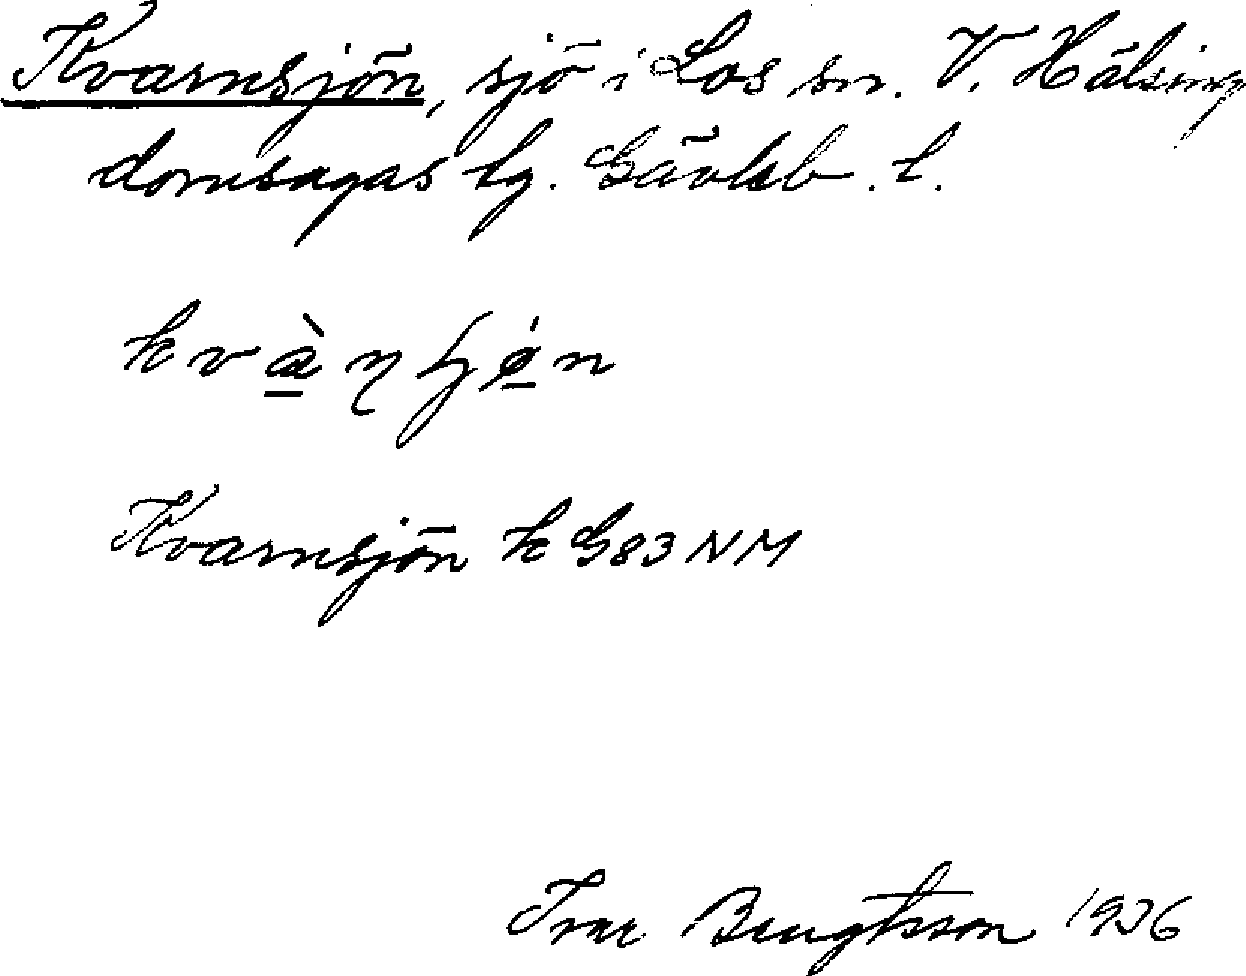 Kvarnsjön, sjö i Los sn. V. Hälsing
domsagas tg. Gävleb. l.
Kvarnsjön k G83 NM
Ivar Bengtsson 1926